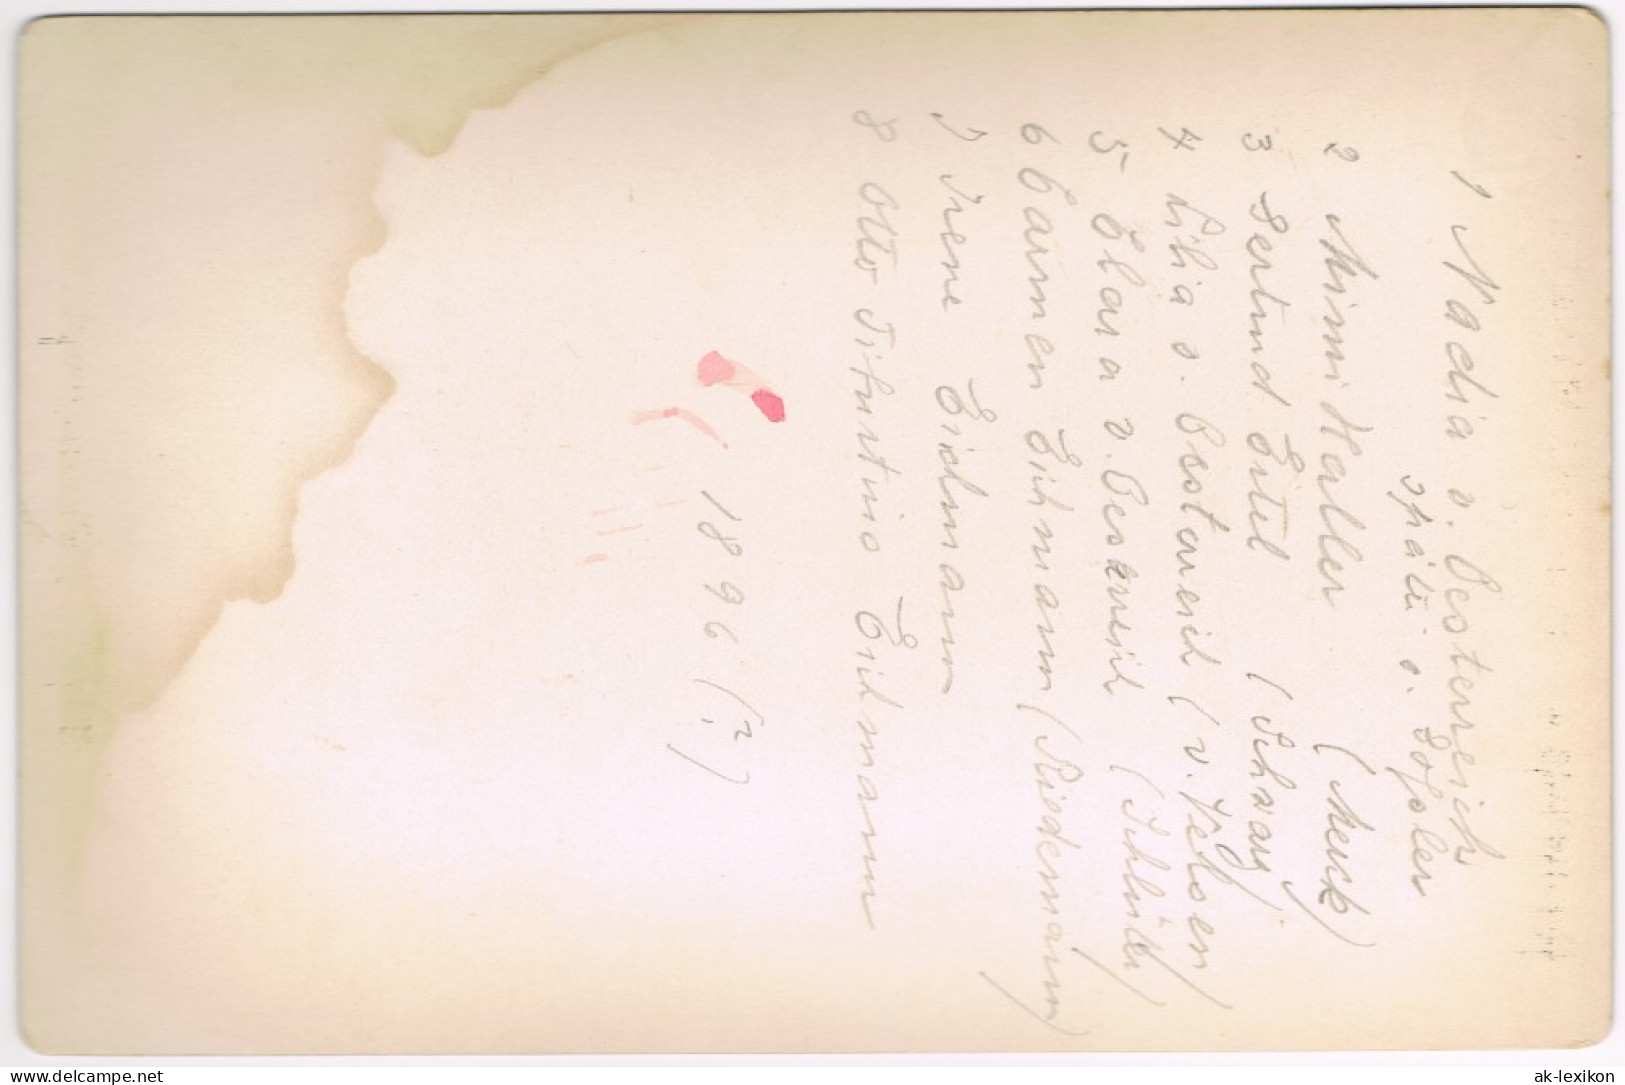 1 Nadia v. Oesterreich
später v. Dossler
2 Mimi Habler (Merck)
3 Gertrud Ertel (Schwarz)
4 Lilia v. Oesterreich (v. Velsen)
5 Clara v. Oesterreich (Schlüter)
6 Carmen Eichmann (Riedemann)
7 Irene Eichmann
8 Otto Tiburtius Eichmann
1896 (?)
delcampe.net
ak-lexikon